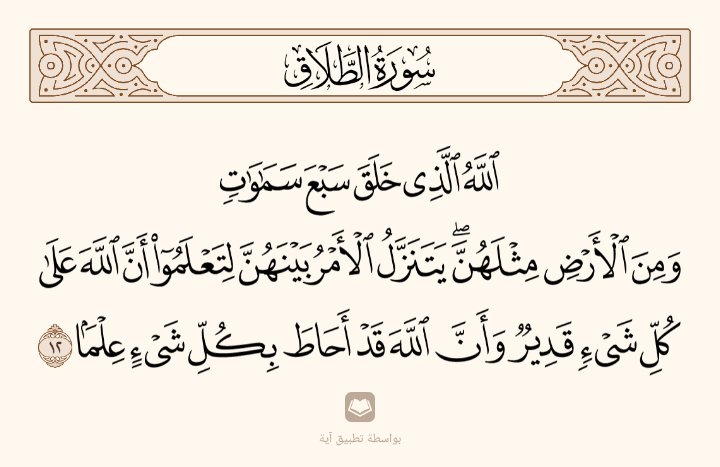 سُورَةُ الطَّلَاقِ
ٱللَّهُ ٱلَّذِى خَلَقَ سَبْعَ سَمَٰوَٰتٍ
وَمِنَ ٱلْأَرْضِ مِثْلَهُنَّۖ يَتَنَزَّلُ ٱلْأَمْرُ بَيْنَهُنَّ لِتَعْلَمُوٓا۟ أَنَّ ٱللَّهَ عَلَىٰ
كُلِّ شَىْءٍ قَدِيرٌ وَأَنَّ ٱللَّهَ قَدْ أَحَاطَ بِكُلِّ شَىْءٍ عِلْمًۢا ١٢
بواسطة تطبيق آية